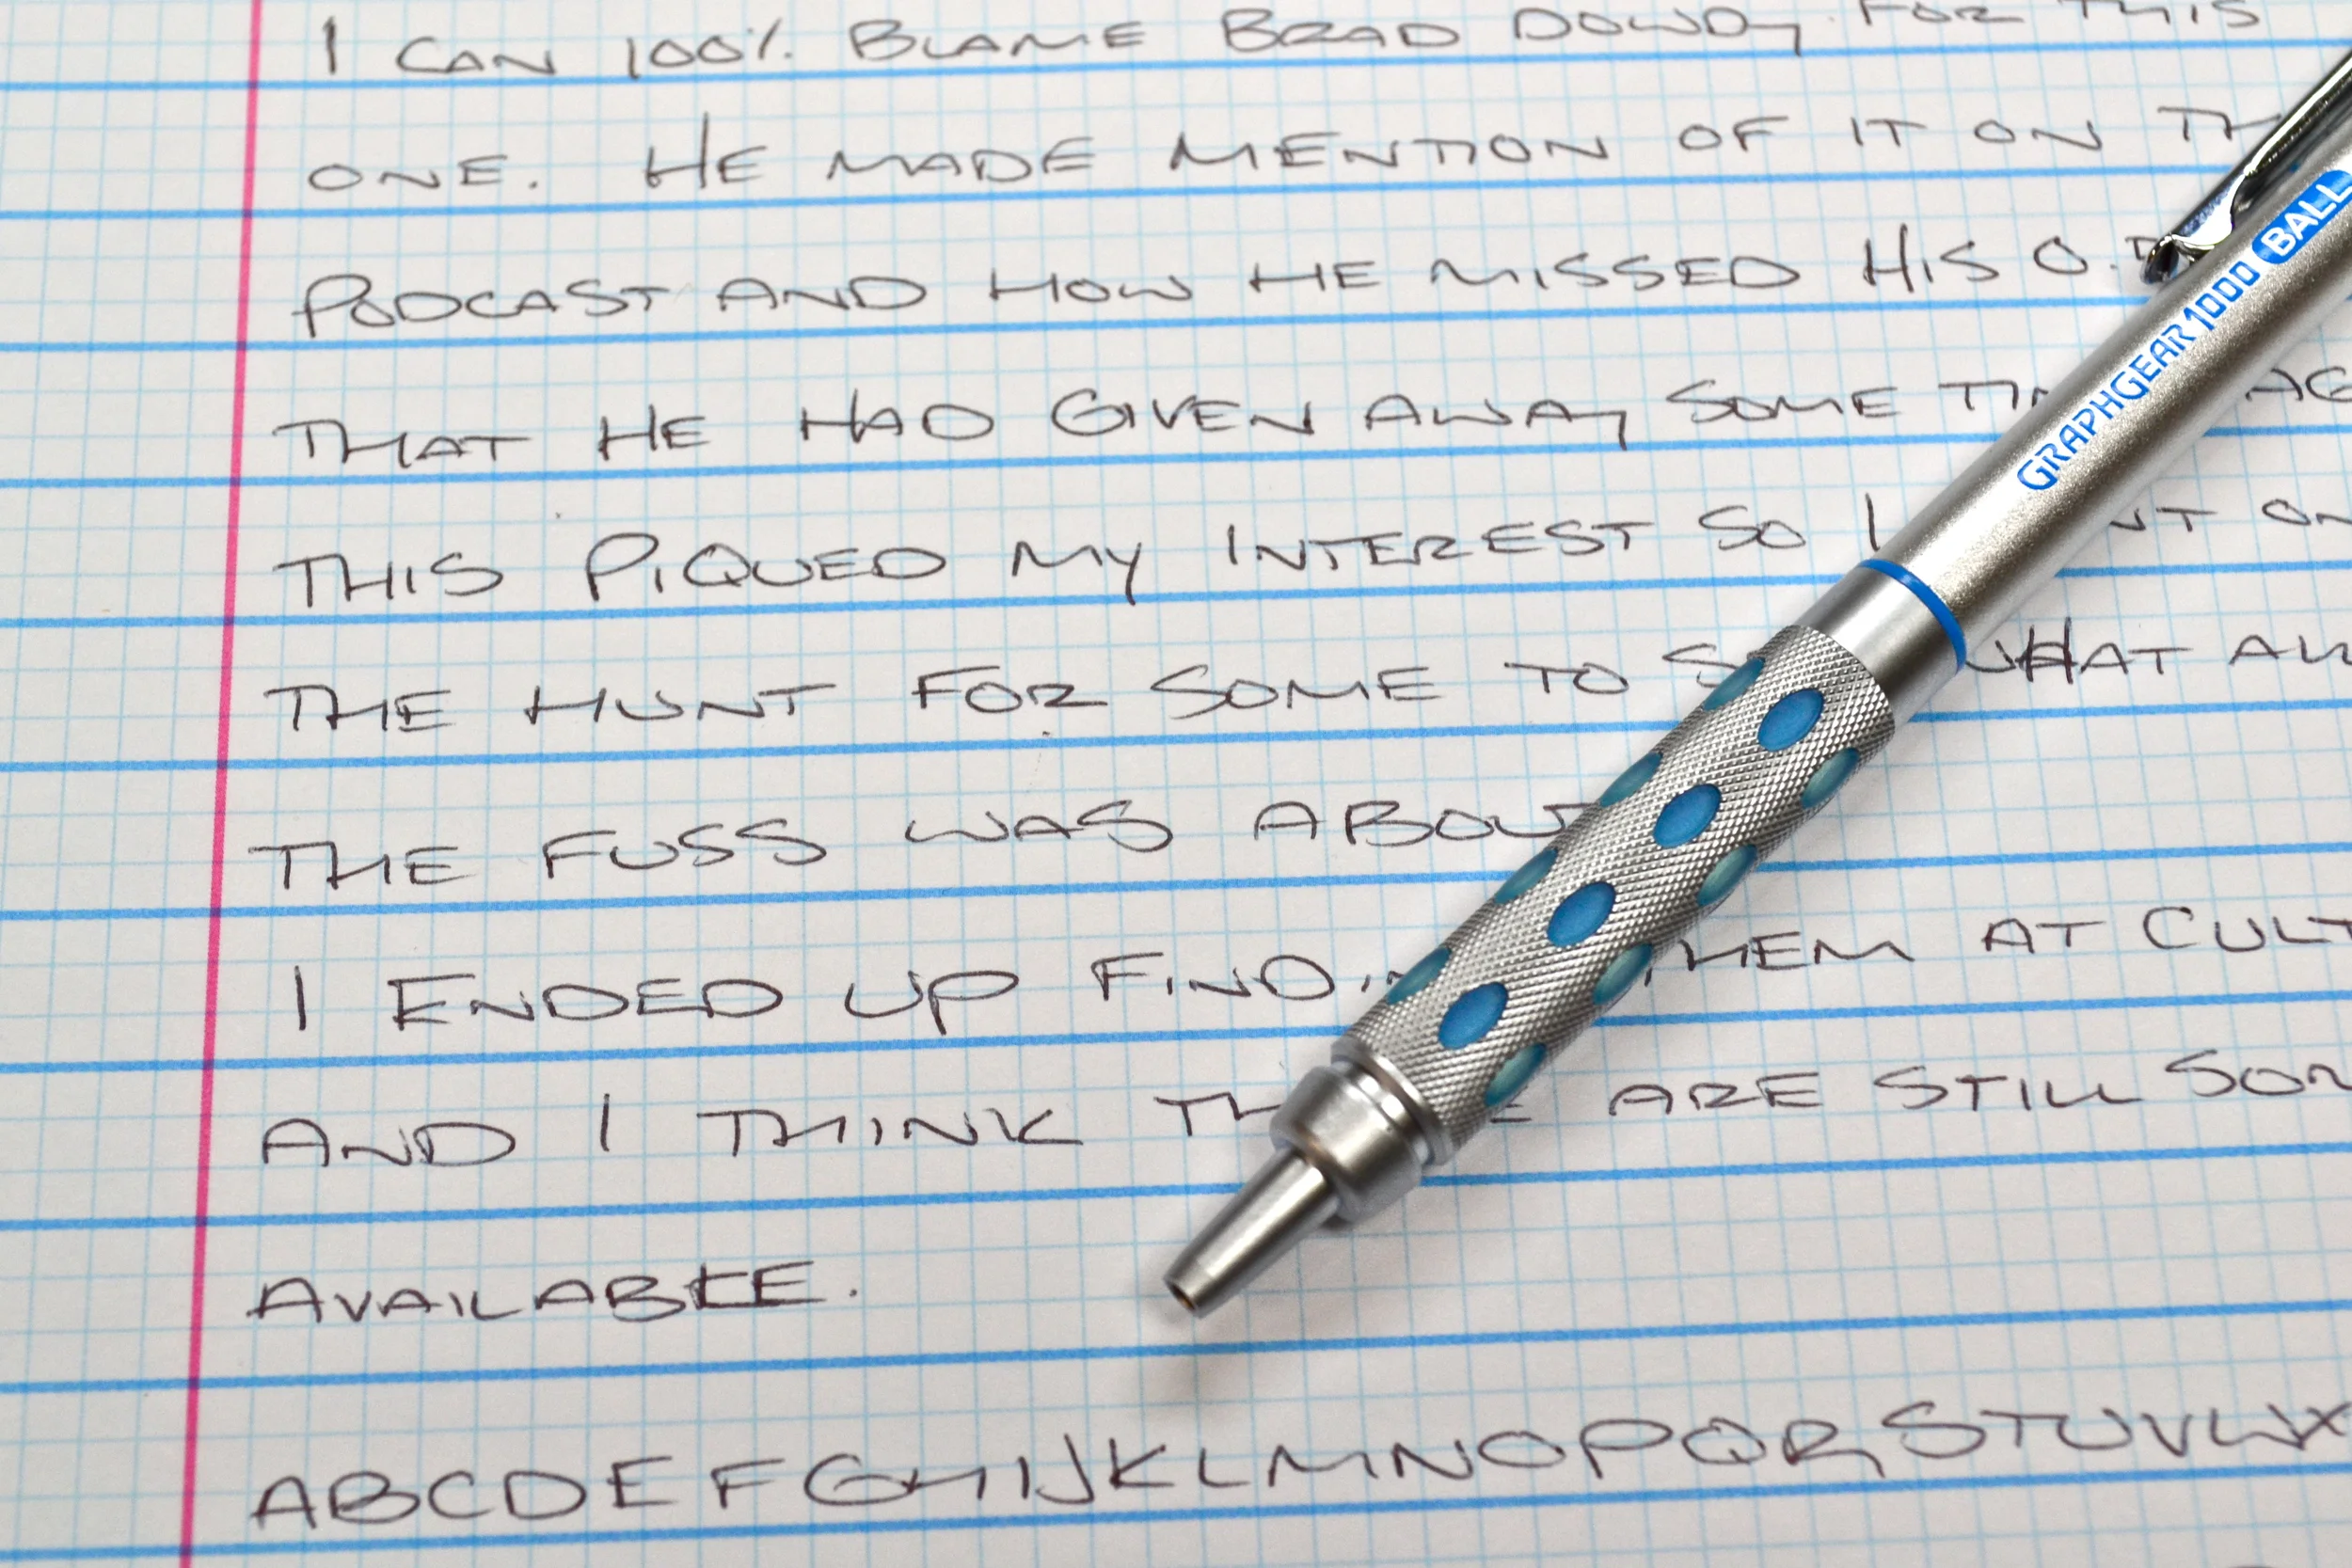 I CAN 100% BLAME BRAD DOWDY FOR THIS
ONE. HE MADE MENTION OF IT ON
PODCAST AND HOW HE MISSED HIS
THAT HE HAD GIVEN AWAY SOME
THIS PIQUED MY INTEREST SO I
THE HUNT FOR SOME TO WHAT
THE FUSS WAS
I ENDED UP AT
AND I THINK ARE STILL
AVAILABLE.
ABCDEFGHIJKLMNOPQRSTUVWX
GRAPHGEAR 1000 BALL